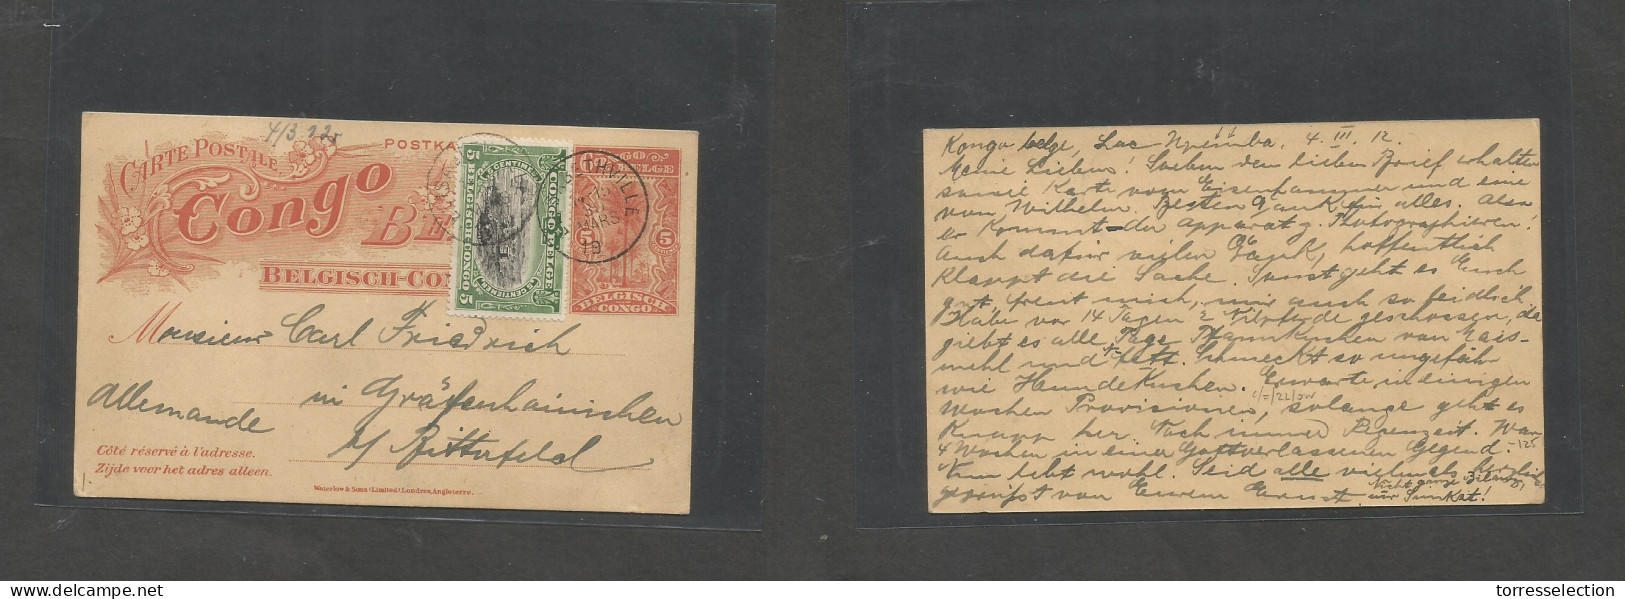 4/3 125
CARTE POSTALE
POSTKA
Congo
BE
BELGISCH-CON
5 CENTIMES
CONGO BELGE
BELGISCH-CONGO
5 CENTIEMEN
5
5
MARS
BELGISCH
CONGO
5
5
Monsieur Carl Friedrich
in Gräfenhainichen
Allemande
b/ Bitterfeld
Côté réservé à l'adresse.
Zijde voor het adres alleen.
Waterlow & Sons Limited, Londres, Angleterre.
Kongo belge, Lac 4. III. 12.
Meine Lieben! Soeben den lieben Brief erhalten
sowie Karte vom und eine
von Wilhelm. Besten Dank für alles. Also
er kommt der Apparat z. Photographieren.
Auch dafür vielen Dank, hoffentlich
klappt die Sache. Sonst geht es Euch
gut, freut mich, mir auch so leidlich.
Habe vor 14 Tagen 2 Nilpferde geschossen, da
giebt es alle Tage Pfannkuchen von Mais-
mehl und Fett. Schmeckt so ungefähr
wie Hundekuchen. Erwarte in einigen
Wochen Provisionen, solange geht es
knapp her. Noch immer Regenzeit. War
4 Wochen in einer Gottverlassenen Gegend.
-125
Nun lebt wohl. Seid alle vielmals herzlich
gegrüßt von Eurem Ernst
Nicht ganze
nur Sankat!
torresselection